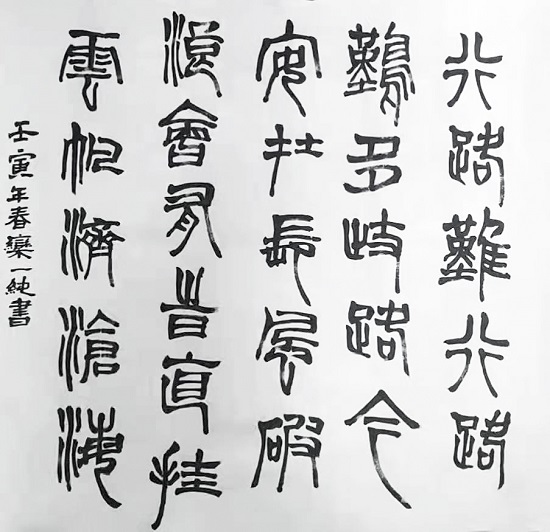 行路難行路
難多歧路今
安在長風破
浪會有旹直挂
雲帆濟滄海
壬寅年春欒一純書